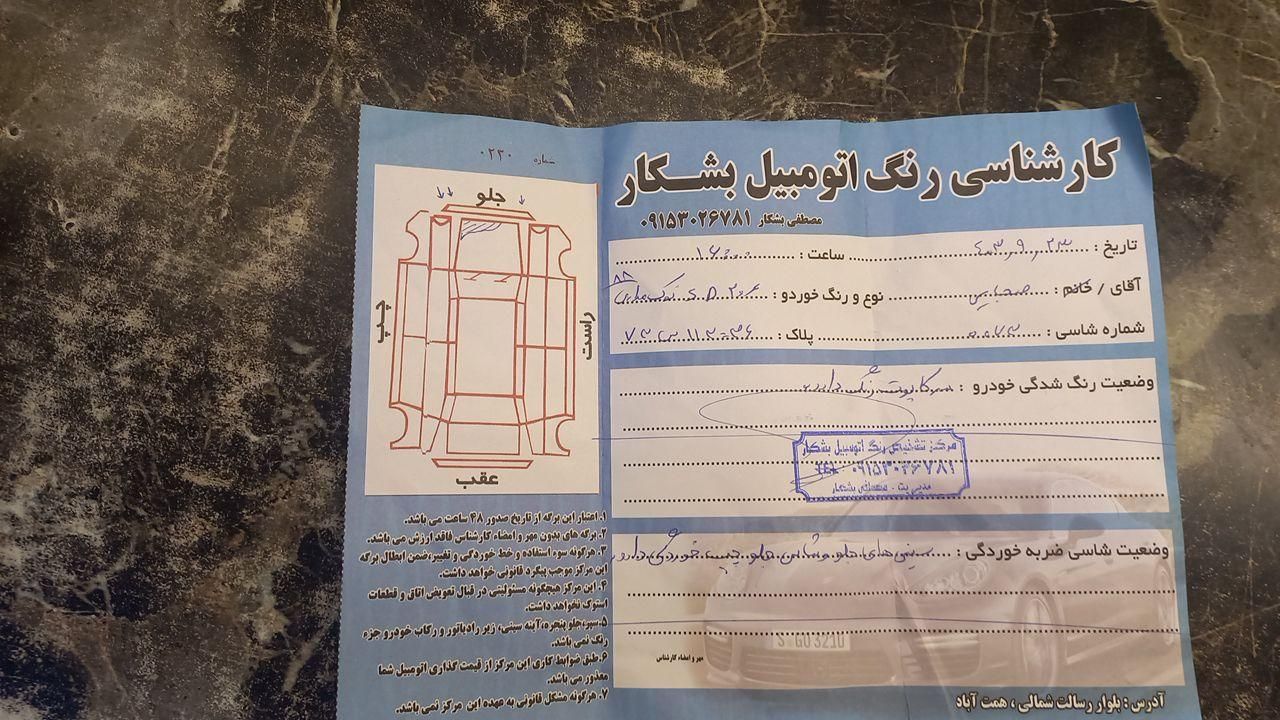 کارشناسی رنگ اتومبیل بشکار
مصطفی بشکار ۰۹۱۵۳۰۲۶۷۸۱
شماره ۰۲۳۰
تاریخ : ۴۰۳,۹,۲۳ ساعت : ۱۶:۰۰
آقای / خانم : نوع و رنگ خودرو : ۲۰۶ S D
شماره شاسی : ۰۰۷۳ پلاک :
وضعیت رنگ شدگی خودرو : سر کاپوت رنگ دارد
مرکز تشخیص رنگ اتومبیل بشکار
TEL ۰۹۱۵۳۰۲۶۷۸۱
مدیریت - مصطفی بشکار
وضعیت شاسی ضربه خوردگی : سینی های جلو و شاسی جلو چپ خوردگی دارد
S GO 3210
مهر و امضاء کارشناس
آدرس : بلوار رسالت شمالی ، همت آباد
جلو
چپ
راست
عقب
۱. اعتبار این برگه از تاریخ صدور ۴۸ ساعت می باشد.
۲. برگه های بدون مهر و امضاء کارشناس فاقد ارزش می باشد.
۳. هرگونه سوء استفاده و خط خوردگی و تغییر، ضمن ابطال برگه
این مرکز موجب پیگرد قانونی خواهد داشت.
۴. این مرکز هیچگونه مسئولیتی در قبال تعویض اتاق و قطعات
استوک نخواهد داشت.
۵. سپر، جلو پنجره، آینه، سینی، زیر رادیاتور و رکاب خودرو جزء
رنگ نمی باشد.
۶. طبق ضوابط کاری این مرکز از قیمت گذاری اتومبیل شما
معذور می باشد.
۷. هرگونه مشکل قانونی به عهده این مرکز نمی باشد.